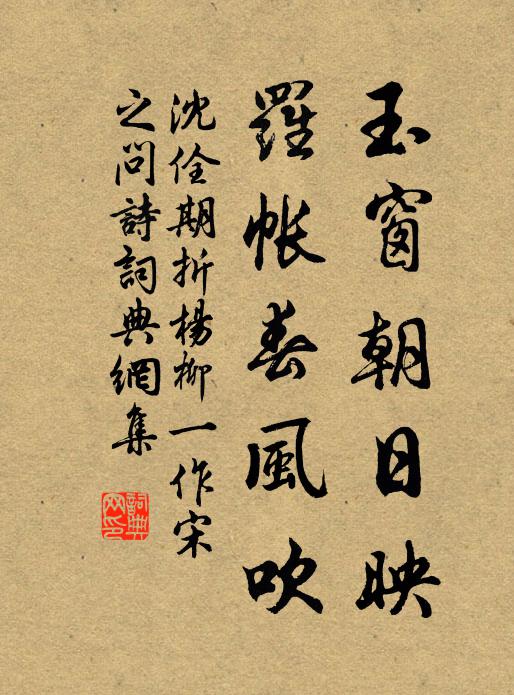 玉窗朝日映
羅帳春風吹
沈佺期折楊柳一作宋
之問詩詞典網集
詞典網印